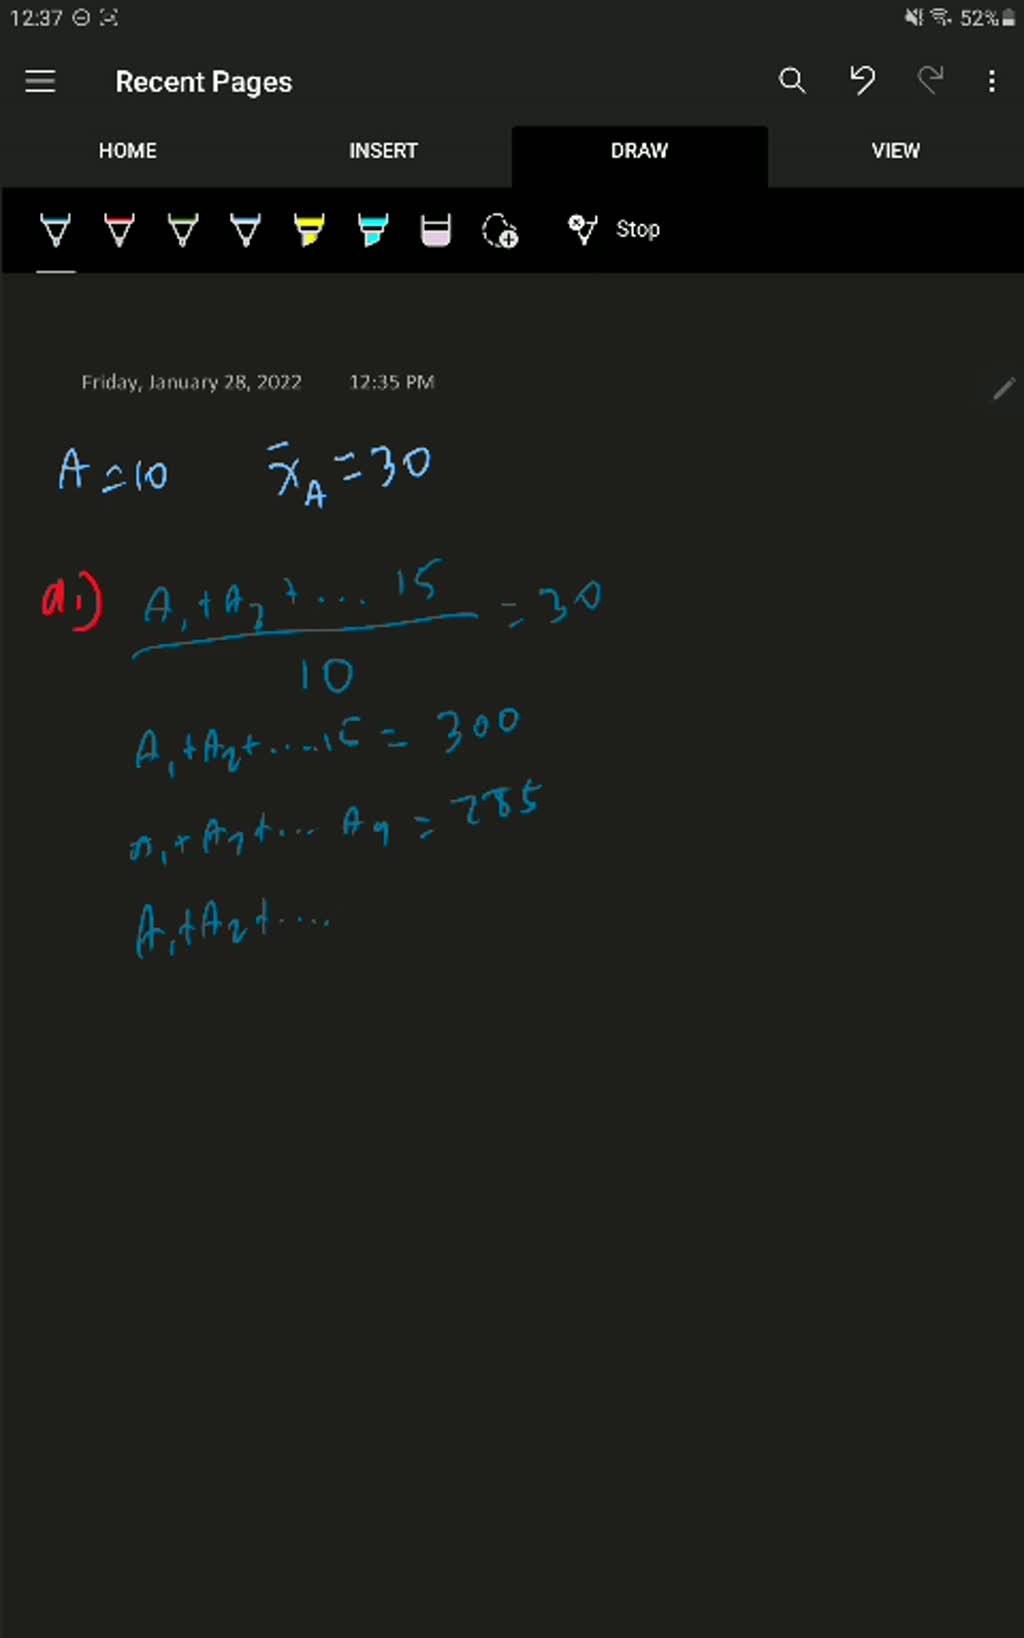 12:37 52%
Recent Pages
HOME INSERT DRAW VIEW
Stop
Friday, January 28, 2022 12:35 PM
A = 10 x̄_A = 30
a.) A₁ + A₂ + ... 15 = 30
10
A₁ + A₂ + ....15 = 300
A₁ + A₂ + ... A₉ = 285
A₁ + A₂ + ....